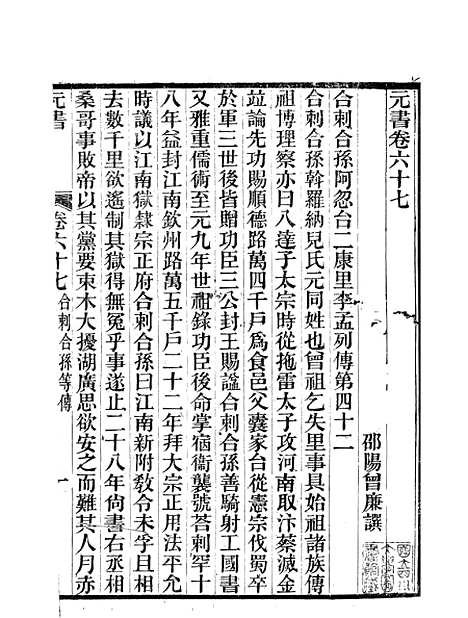 元書卷六十七
邵陽曾廉譔
合剌合孫阿忽台二康里李孟列傳第四十二
合剌合孫斡羅納兒氏元同姓也曾祖乞失里事具始祖諸族傳
祖博理察亦曰八達子太宗時從拖雷太子攻河南取汴蔡滅金
竝論先功賜順德路萬四千戶爲食邑父囊家台從憲宗伐蜀卒
於軍三世後皆贈功臣三公封王賜諡合剌合孫善騎射工國書
又雅重儒術至元九年世祖錄功臣後命掌宿衞襲號荅剌罕十
八年益封江南欽州路萬五千戶二十二年拜大宗正用法平允
時議以江南獄隸宗正府合剌合孫曰江南新附敎令未孚且相
去數千里欲遙制其獄得無冤乎事遂止二十八年尙書右丞相
桑哥事敗帝以其黨要束木大擾湖廣思欲安之而難其人月赤
元書
卷六十七
合剌合孫等傳
一